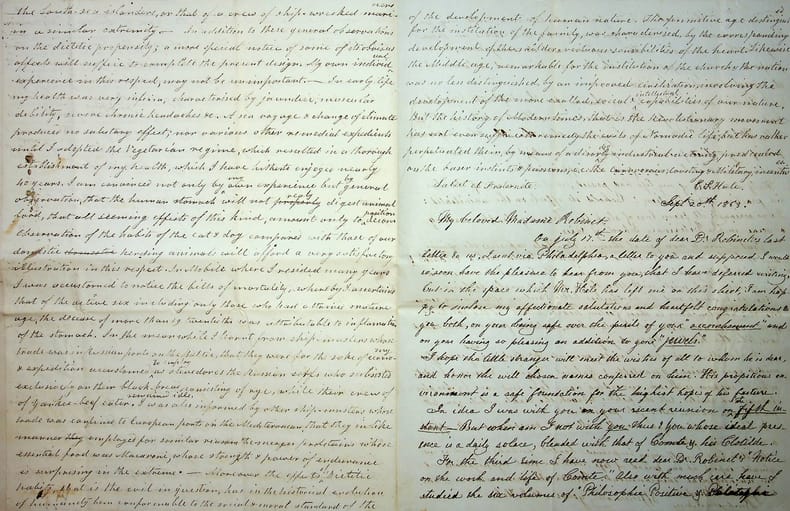 the South-sea islanders, or that of a crew of ship-wrecked mari-
in a similar extremity. In addition to these general observations
on the dietetic propensity; a more special notice of some of its obvious
effects will suffice to complete the present design. My own individual
experience in this respect, may not be unimportant. — In early life
my health was very infirm, characterised by jaundice, muscular
debility, severe chronic headaches &c. A sea voyage & change of climate
produces no salutary effect; nor various other remedial expedients
until I adopted the Vegetarian regime, which resulted in a thorough
establishment of my health, which I have hitherto enjoyed nearly
40 years. I am convinced not only by my own experience but by general
observation, that the human stomach will not properly digest animal
food, that all seeming effects of this kind, amount only to decomposition
observation of the habits of the cat & dog compared with those of our
domestic herding animals will afford a very satisfactory
illustration in this respect. In Mobile where I resided many years
I was accustomed to notice the bills of mortality, whereby I ascertained
that of the active sex including only those who had attained mature
age, the decease of more than 19 twentieths was attributable to inflamation
of the stomach. In the meanwhile I learnt from ship-masters whose
trade was in Russian ports on the Baltic, that they were for the sake of
& expedition accustomed to employ as stevedores the Russian serfs who subsisted
exclusively on their black bread, consisting of rye, while their crews of
of Yankee beef eaters remained idle. I was also informed by other ship-masters whose
trade was confined to European ports on the Mediterranean, that they in like
manner they employed for similar reasons the meagre proletaires whose
essential food was Macaroni, whose strength & power of endurance
is surprising in the extreme. — Moreover the effects, Dietetic
that is the evil in question, has in the historical evolution
of humanity been conformable to the social & moral standard of the
of the development of human nature. The primitive age distinguished
for the institution of the family, was characterised, by the corresponding
development of the milder & virtuous sensibilities of the heart. Likewise
the Middle age, remarkable for the institution of the church & the nation
was no less distinguished by an improved civilisation, involving the
development of the more exalted, social & intellectual capabilities of our nature.
But the history of Modern times, that is the revolutionary movement
has not even the evils of Nomadic life, but has rather
perpetuated them, by means of a directly industrial activity, predicated
on the baser instincts & passions, i.e. the carnivorous, coveting & Military, incentives
Salut et Fraternite. C. S. Hale.
Sept 20th 1858.
My beloved Madame Robinet.
On July 17th the date of dear Dr. Robinet's last
letter to us, I sent via Philadelphia, a letter to you and supposed I would
so soon have the pleasure to hear from you, that I have deferred writing,
but in the space which Mr. Hale has left me on this sheet, I am hap-
py to inclose my affectionate salutations and heartfelt congratulations to
you both, on your being safe over the perils of your "accouchement" and
on your having so pleasing an addition to your "jewels."
I hope the little stranger will meet the wishes of all to whom he is near
and honor the well chosen names conferred on him. His propitious en-
vironment is a safe foundation for the highest hopes of his future.
In idea I was with you on your recent reunion on the fifth in-
stant — But when am I not with you thus! you whose ideal pres-
ence is a daily solace, blended with that of Comte & his Clotilde.
For the third time I have now read dear Dr. Robinet's "Notice
on the work and life of Comte." Also with much care have I
studied the six volumes of "Philosophie Positive" &